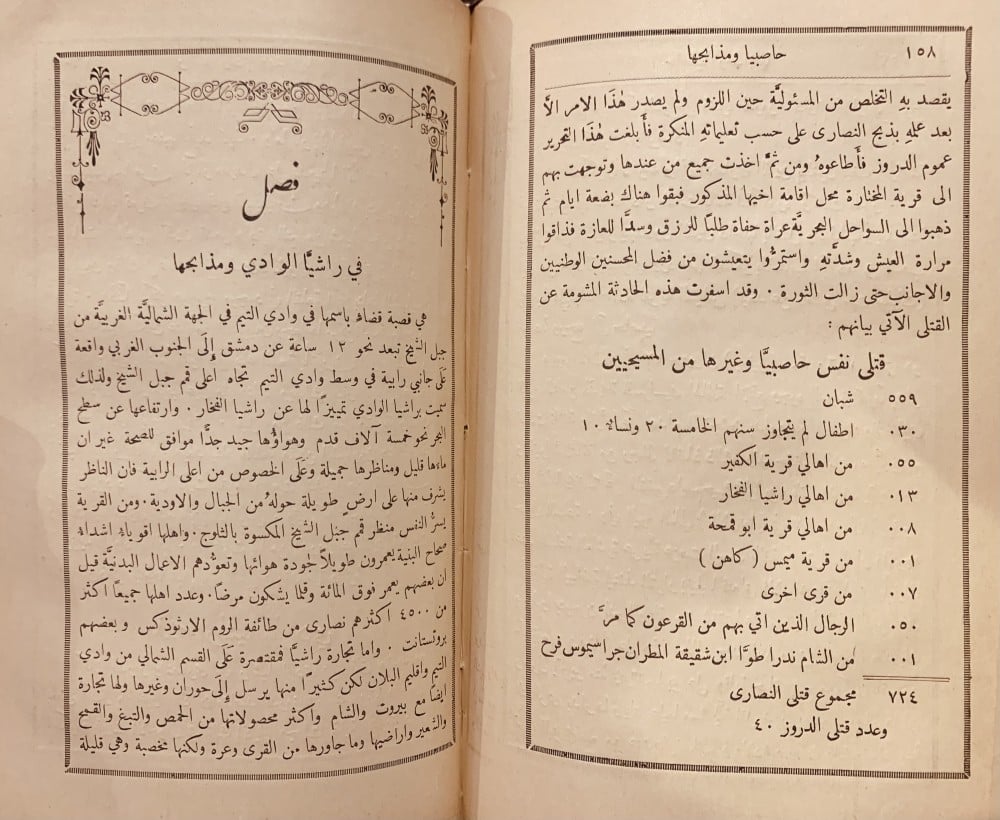 ١٥٨ حاصبيا ومذابحها
يقصد بهِ التخلص من المسئوليَّة حين اللزوم ولم يصدر هٰذا الامر الاَّ
بعد عملهِ بذبح النصارى على حسب تعليماتهِ المنكرة فأَبلغت هٰذا التحرير
عموم الدروز فأَطاعوهُ ومن ثمَّ اخذت جميع من عندها وتوجهت بهم
الى قرية المختارة محل اقامة اخيها المذكور فبقوا هناك بضعة ايام ثم
ذهبوا الى السواحل البحريَّة عراة حفاة طلبًا للرزق وسدًّا للعازة فذاقوا
مرارة العيش وشدَّتهِ واستمرُّوا يتعيشون من فضل المحسنين الوطنيين
والاجانب حتى زالت الثورة . وقد اسفرت هذه الحادثة المشومة عن
القتلى الآتي بيانهم :
قتلى نفس حاصبيَّا وغيرها من المسيحيين
٥٥٩ شبان
٠٣٠ اطفال لم يتجاوز سنهم الخامسة ٢٠ ونسائ ١٠
٠٥٥ من اهالي قرية الكفير
٠١٣ من اهالي راشيا الفخار
٠٠٨ من اهالي قرية ابو قمحة
٠٠١ من قرية ميمس ( كاهن )
٠٠٧ من قرى اخرى
٠٥٠ الرجال الذين اتي بهم من القرعون كما مرَّ
٠٠١ من الشام ندرا طوَّا ابن شقيقة المطران جراسيموس فرح
٧٢٤ مجموع قتلى النصارى
وعدد قتلى الدروز ٤٠
فصل
في راشيَّا الوادي ومذابحها
هي قصبة قضاء باسمها في وادي التيم في الجهة الشماليَّة الغربيَّة من
جبل الشيخ تبعد نحو ١٢ ساعة عن دمشق إِلَى الجنوب الغربي واقعة
عَلَى جانبي رابية في وسط وادي التيم تجاه اعلى قمم جبل الشيخ ولذلك
سميت براشيا الوادي تمييزًا لها عن راشيا الفخار . وارتفاعها عن سطح
البحر نحو خمسة آلاف قدم وهواؤُها جيد جدًّا موافق للصحة غير ان
ماءها قليل ومناظرها جميلة وعَلَى الخصوص من اعلى الرابية فان الناظر
يشرف منها على ارض طويلة حولهُ من الجبال والاودية . ومن القرية
يسرُّ النفس منظر قمم جبل الشيخ المكسوة بالثلوج . واهلها اقوياء اشداء
صحاح البنية يعمرون طويلاً لجودة هوائها وتعوُّدهم الاعمال البدنيَّة قيل
ان بعضهم يعمر فوق المائة وقلما يشكون مرضًا . وعدد اهلها جميعًا اكثر
من ٤٥٠٠ اكثرهم نصارى من طائفة الروم الارثوذكس وبعضهم
بروتستانت . واما تجارة راشيَّا فمقتصرة عَلَى القسم الشمالي من وادي
التيم واقليم البلان لكن كثيرًا منها يرسل إِلَى حوران وغيرها ولها تجارة
ايضًا مع بيروت والشام واكثر محصولاتها من الحمص والتبغ والقمح
والشعير واراضيها وما جاورها من القرى وعرة ولكنها مخصبة وهي قليلة